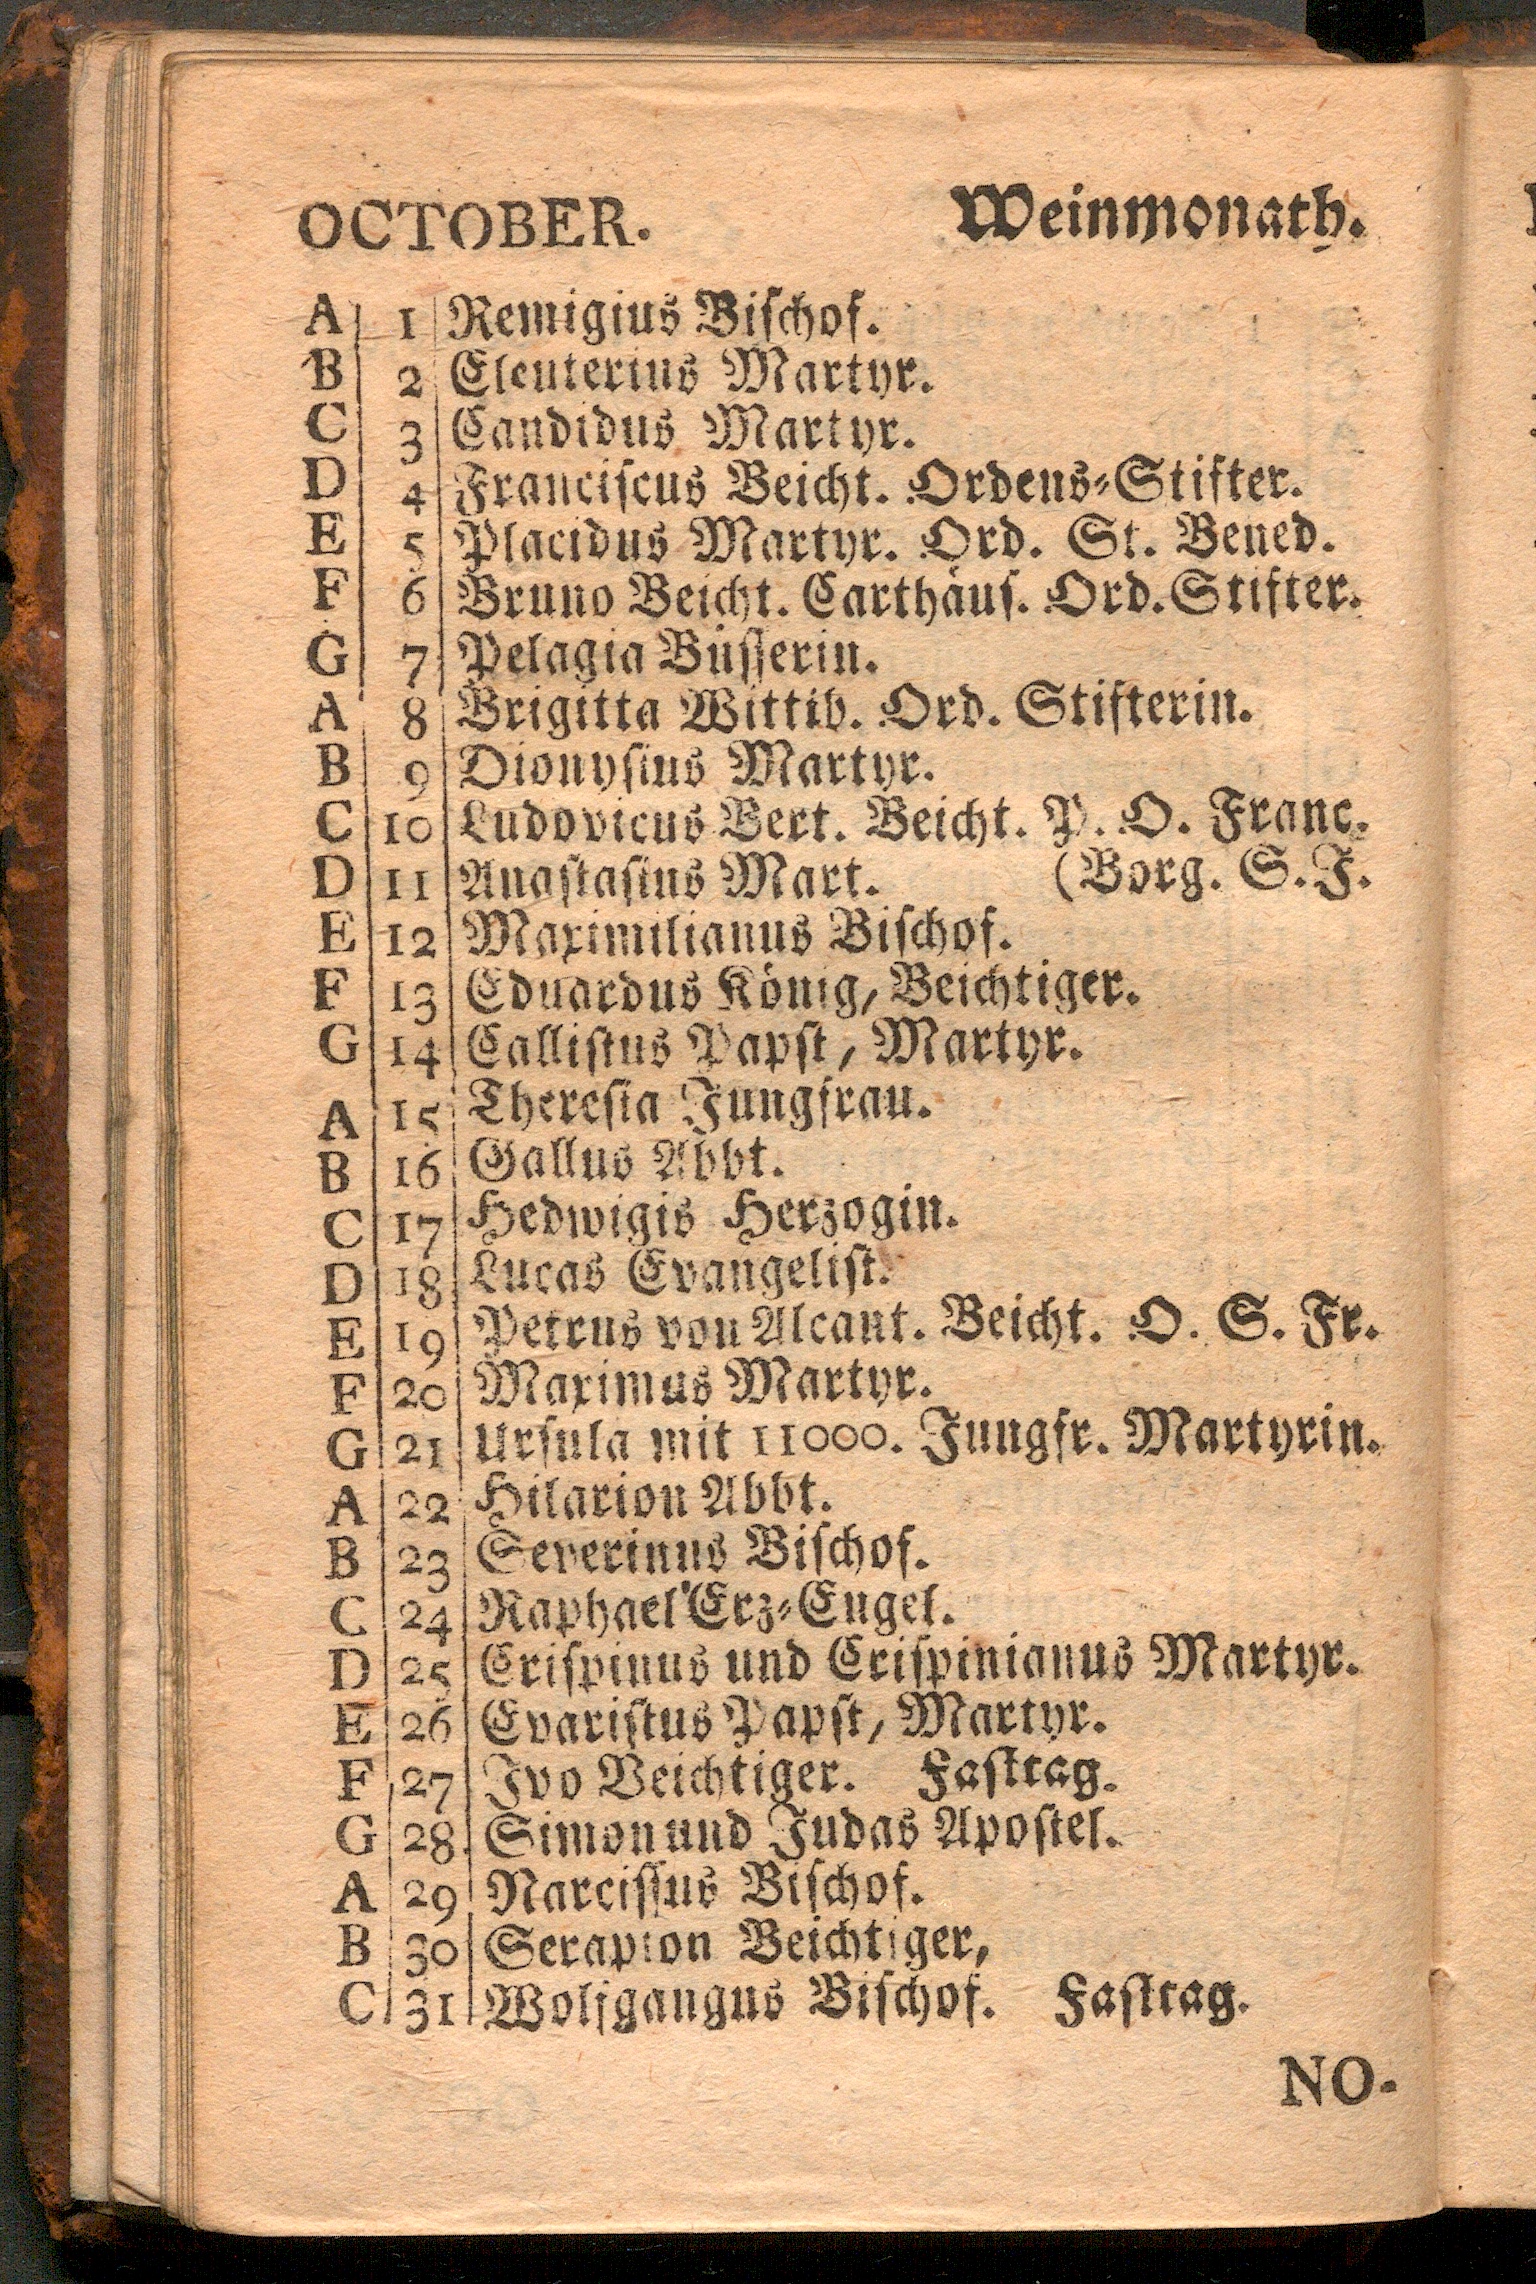 OCTOBER. Weinmonath.
A 1 Remigius Bischof.
B 2 Eleuterius Martyr.
C 3 Candidus Martyr.
D 4 Franciscus Beicht. Ordens-Stifter.
E 5 Placidus Martyr. Ord. St. Bened.
F 6 Bruno Beicht. Carthäus. Ord. Stifter.
G 7 Pelagia Büsserin.
A 8 Brigitta Wittib. Ord. Stifterin.
B 9 Dionysius Martyr.
C 10 Ludovicus Bert. Beicht. P. O. Franc.
D 11 Anastasius Mart. (Borg. S. J.
E 12 Maximilianus Bischof.
F 13 Eduardus König, Beichtiger.
G 14 Callistus Papst, Martyr.
A 15 Theresia Jungfrau.
B 16 Gallus Abbt.
C 17 Hedwigis Herzogin.
D 18 Lucas Evangelist.
E 19 Petrus von Alcant. Beicht. O. S. Fr.
F 20 Maximus Martyr.
G 21 Ursula mit 11000. Jungfr. Martyrin.
A 22 Hilarion Abbt.
B 23 Severinus Bischof.
C 24 Raphael Erz-Engel.
D 25 Crispinus und Crispinianus Martyr.
E 26 Evaristus Papst, Martyr.
F 27 Ivo Beichtiger. Fasttag.
G 28 Simon und Judas Apostel.
A 29 Narcissus Bischof.
B 30 Serapion Beichtiger,
C 31 Wolfgangus Bischof. Fasttag.
NO-